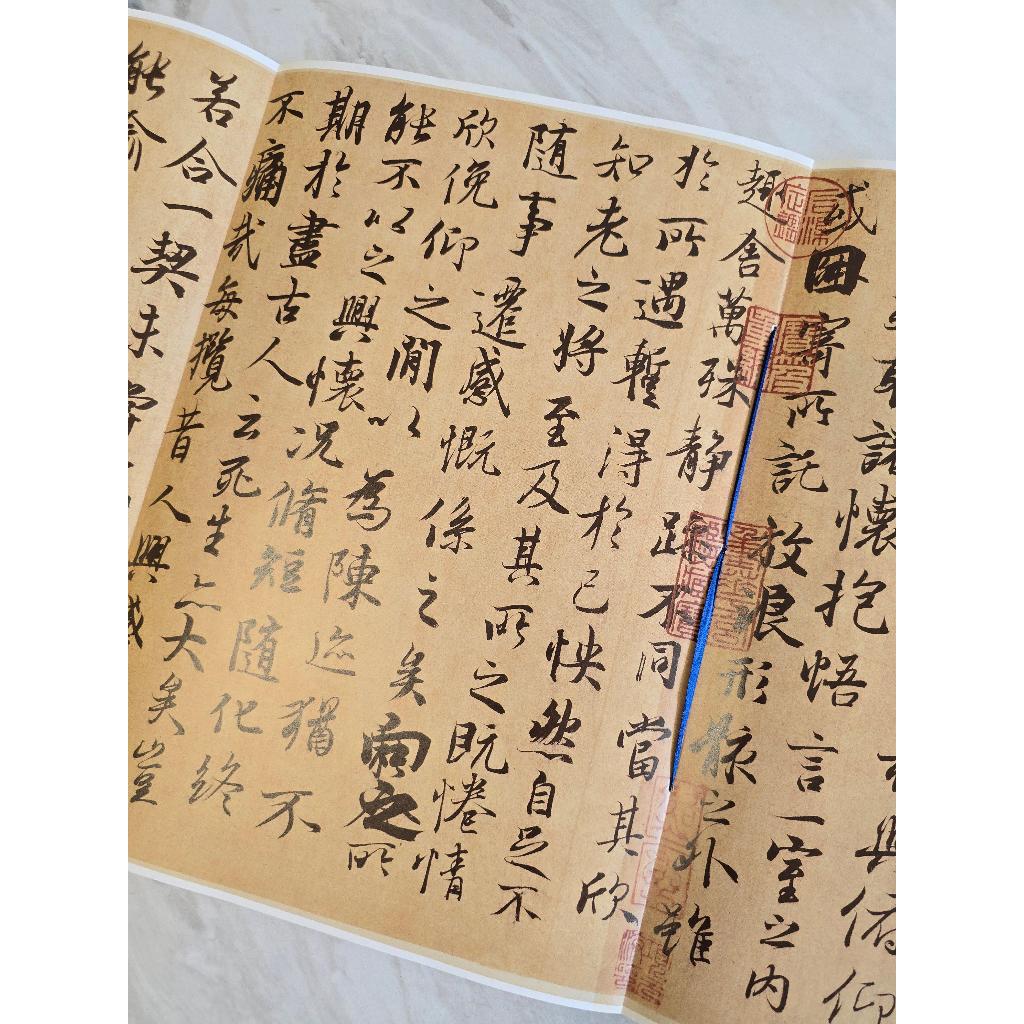 與俯仰
取諸懷抱悟言一室之內
或因寄所託放浪形骸之外雖
趣舍萬殊靜躁不同當其欣
於所遇暫得於己怏然自足不
知老之將至及其所之既惓情
隨事遷感慨係之矣向之所
欣俛仰之閒以為陳迹猶不
能不以之興懷況脩短隨化終
期於盡古人云死生亦大矣豈
不痛哉每攬昔人興感
若合一契未嘗
能喻